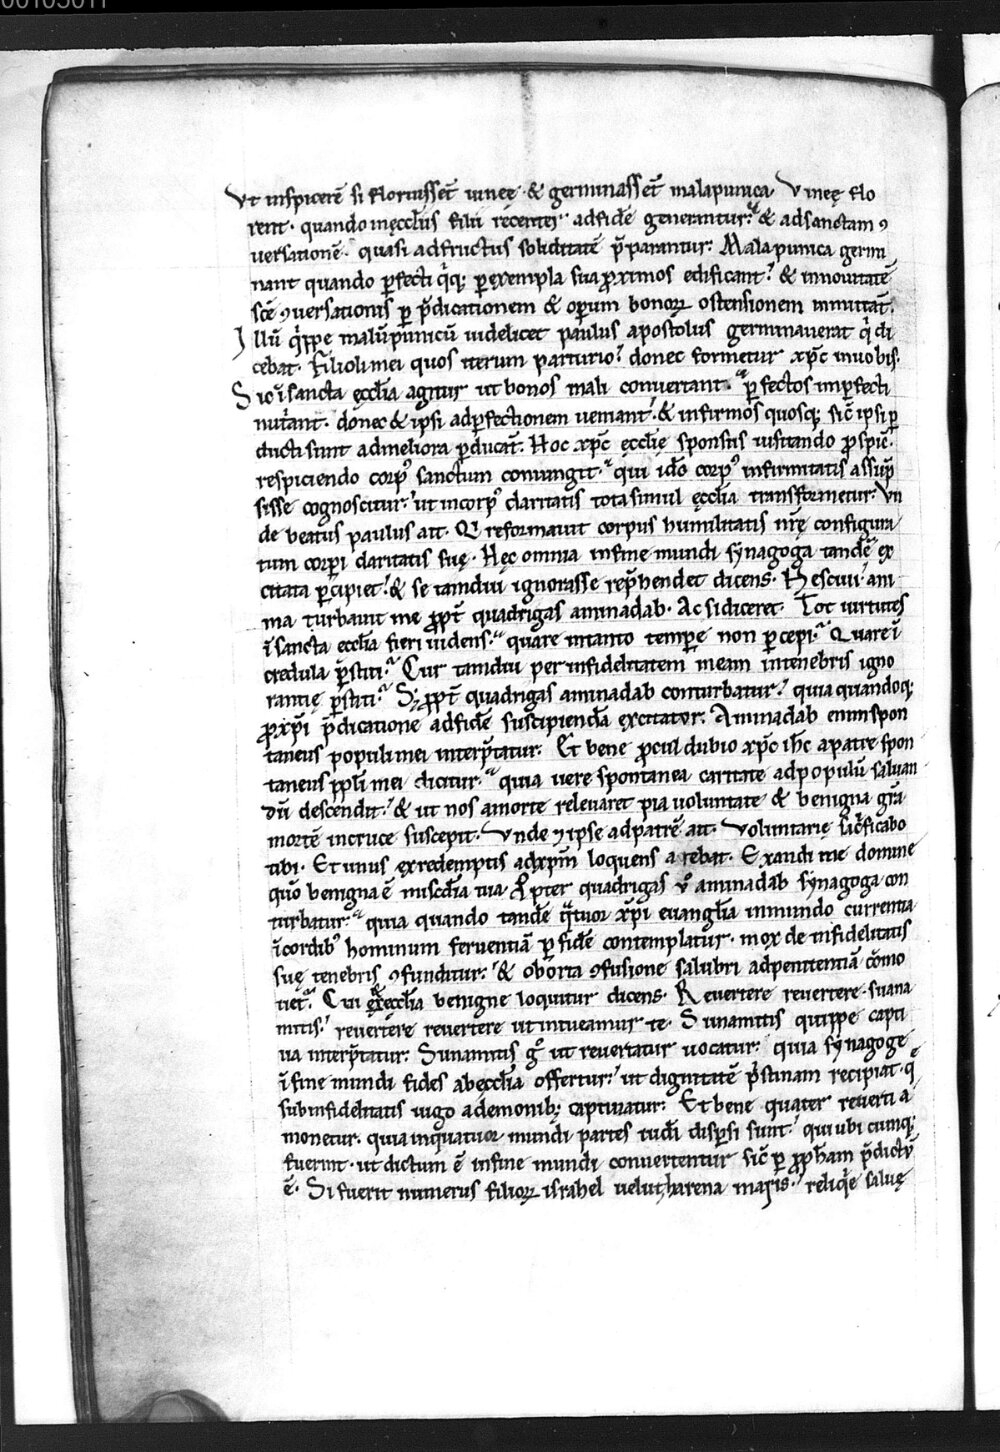 00105011
Vt inspicerē si floruissēt uineę · & germinassēt malapunica Vineę flo
rent · quando inęccl̄iis filii recentes adfidē generantur: & adsanctam ꝯ
uersationē · quasi adfructus soliditatē p̄parantur: Mala punica germi
nant quando ꝑfecti q̄q; ꝑ exempla sua ꝓximos edificant: & innouitatē
scē ꝯuersationis ꝑ p̄dicationem & operum bonoꝝ ostensionem inmutāt.
Illū q̍ppe malūpunicū uidelicet paulus apostolus germinauerat q̍ di
cebat · Filioli mei quos iterum parturio: donec formetur xp̄c inuobis.
Sic ī sancta ęccl̄ia agitur ut bonos mali conuertant · ꝑfectos inꝑfecti
nut̍ant · donec & ipsi adꝑfectionem ueniant: & infirmos quosq; sic̄ ipsi ꝑ
ducti sunt admeliora ꝑducāt. Hoc xp̄c ęccl̄ię sponsus uisitando ꝓspic̄.
respiciendo corp᾽ sanctum coniungit: qui id̄o corp᾽ infirmitatis assūp
sisse cognoscitur: ut incorp᾽ claritatis tota simul ęccl̄ia transformetur: Vn
de beatus paulus ait. Q reformauit corpus humilitatis nr̄ę configura
tum corpri claritatis suę. Hęc omnia infine mundi synagoga tandē ex
citata ꝑcipiet: & se tamdiu ignorasse rep̄hendet dicens. Nesciui: ani
ma turbauit me ꝓpt̄ quadrigas aminadab. Ac si diceret. Tot uirtutes
ī sancta ecclīa fieri uidens: quare intanto tempore non ꝑcepi: Quare ī
credula p̄stiti: Cur tamdiu per infidelitatem meam intenebris igno
rantię p̄stiti: S; ꝓpt̄ quadrigas aminadab conturbatur: quia quandoq;
ꝓ xp̄i p̄dicatione adfidē suscipiendā excitator: Aminadab enim spon
taneus populi mei interp̄tatur: Et bene ꝓcul dubio xp̄c ih̄c apatre spon
taneus pp̄li mei dicitur: quia uere spontanea caritate adpopulū saluan
dū descendit: & ut nos amorte releuaret pia uoluntate & benigna gr̄a
mortē incruce suscepit. Vnde ⁊ ipse adpatrē ait. Voluntarię sac̍ficabo
tibi. Et unus exredemptis adxp̄m loquens a rebat. Exaudi me domine
quō benigna ē misc̄dia tua. Ꝓpter quadrigas ū aminadab synagoga con
turbatur: quia quando tandē q̄tuor xp̄i euanglīa inmundo currentia
ī cordib᾽ hominum feruentiā ꝑ fidē contemplatur · mox de infidelitatis
suę tenebris ꝯfunditur: & oborta ꝯfusione salubri adpenitentiā cōmo
uet᾽. Cui ex ęccl̄ia benigne loquitur dicens. Reuertere reuertere · suna
mitis: reuertere reuertere ut intueamur te. Sunamitis quippe capti
ua interp̄tatur: Sunamitis g̊ ut reuertatur uocatur: quia synagoge
ī fine mundi fides abęccl̄ia offertur: ut dignitatē p̄stinam recipiat · q̄
subinfidelitatis iugo ademonib; captiuatur: Et bene quater reuerti a
monetur · quia inquatuor mundi partes iudi disp̄si sunt: qui ubi cumq;
fuerint · ut dictum ē infine mundi conuertentur sic̄ ꝑ ꝓph̄am p̄dictū
ē. Si fuerit numerus filioꝝ israhel uelut harena maris: reliq̍e saluę